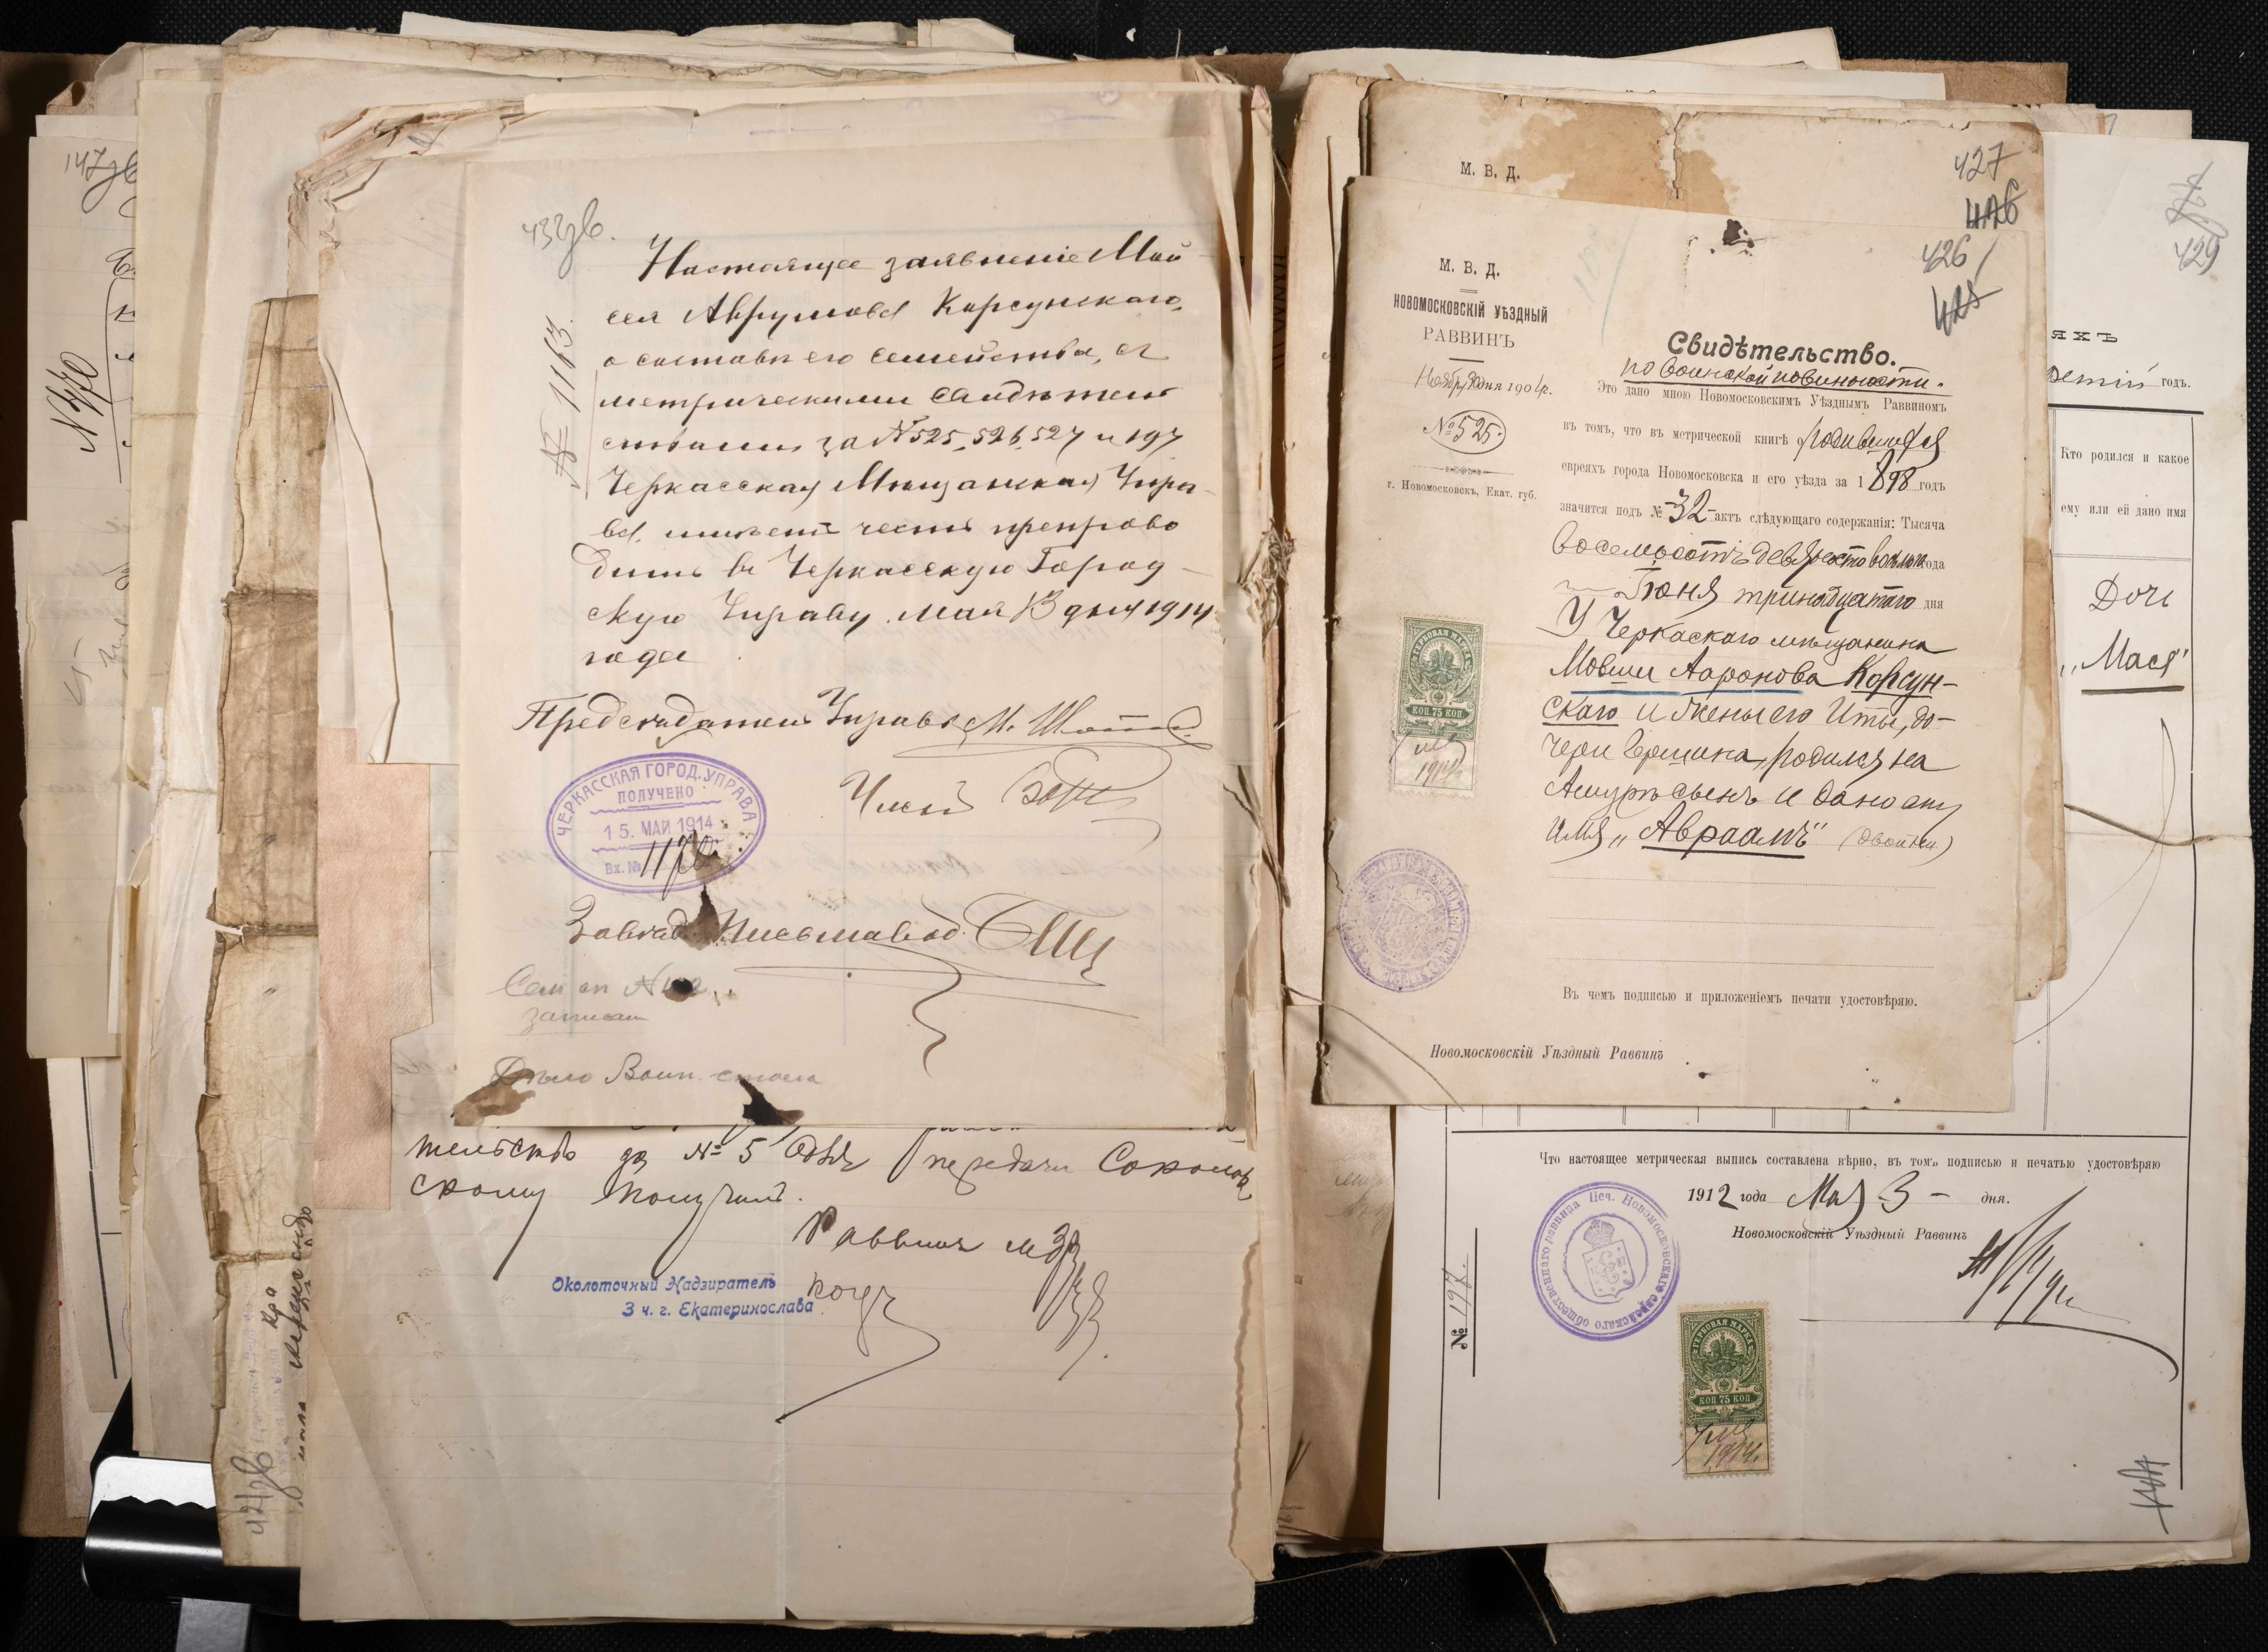 147 зв
№ 770
432 зв.
№ 1163.
Настоящее заявленіе Мой
сея Аврумова Корсунскаго,
о составѣ его семейства, съ
метрическими свидѣтель
ствами за № 525, 526, 527 и 197
Черкасская Мѣщанская Упра-
ва имѣетъ честь препрово
дить въ Черкасскую Город-
скую Управу. Мая 13 дня 1914
года
Предсѣдатель Управы М.
Членъ
ЧЕРКАССКАЯ ГОРОД. УПРАВА
ПОЛУЧЕНО
15. МАЙ 1914
Вх. №
Завѣд. Письмовод.
Сем сп №
записан
Дѣло Воин. стола
тельство за № 5 для передачи Соколов
скому получилъ.
Раввинъ
Околоточный Надзиратель
3 ч. г. Екатеринослава
421 зв
М. В. Д.
427
426
426
425
М. В. Д.
НОВОМОСКОВСКІЙ УѢЗДНЫЙ
РАВВИНЪ
Ноября дня 1904 г.
№ 525.
г. Новомосковскъ, Екат. губ.
Свидѣтельство.
по воинской повинности.
Это дано мною Новомосковскимъ Уѣзднымъ Раввиномъ
въ томъ, что въ метрической книгѣ о родившихся
евреяхъ города Новомосковска и его уѣзда за 1898 годъ
значится подъ № 32 актъ слѣдующаго содержанія: Тысяча
восемьсотъ девяносто восьмого года
Іюня тринадцатаго дня
У Черкаскаго мѣщанина
Мовши Ааронова Корсун-
скаго и жены его Иты, до-
чери Гершина, родился на
Ашурѣ сынъ и дано ему
имя „Авраамъ" (двойни)
Въ чемъ подписью и приложеніемъ печати удостовѣряю.
Новомосковскій Уѣздный Раввинъ
ТЕРБОВАЯ МАРКА
КОП 75 КОП
1914 г.
429
яхъ
годъ.
Кто родился и какое
ему или ей дано имя
Дочь
„Мася"
Что настоящее метрическая выпись составлена вѣрно, въ томъ подписью и печатью удостовѣряю
1912 года Мая 3 – дня.
Новомосковскій Уѣздный Раввинъ
№ 197.
Печ. Новомосковскаго еврейскаго общественнаго раввина
ГЕРБОВАЯ МАРКА
КОП 75 КОП
1914 г.